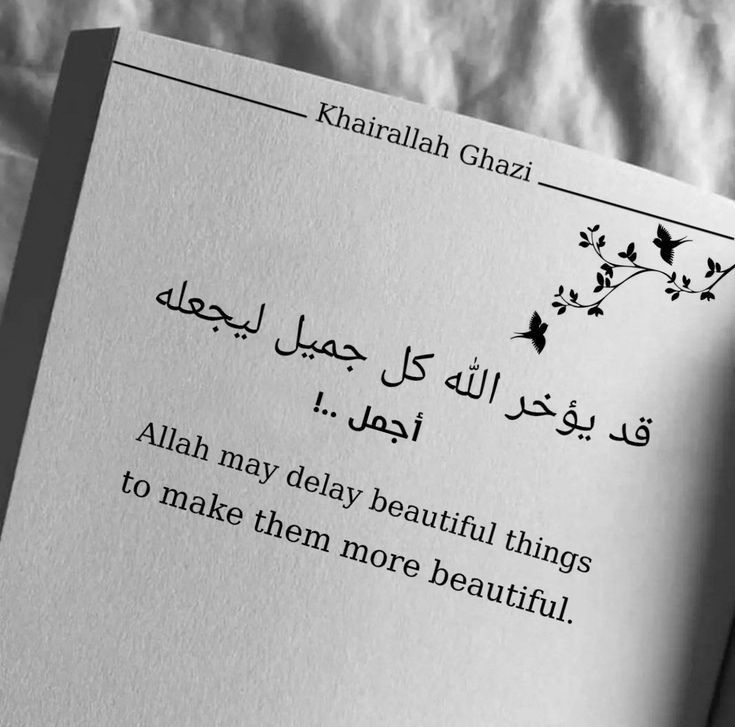 Khairallah Ghazi
قد يؤخر الله كل جميل ليجعله
أجمل ..!
Allah may delay beautiful things
to make them more beautiful.